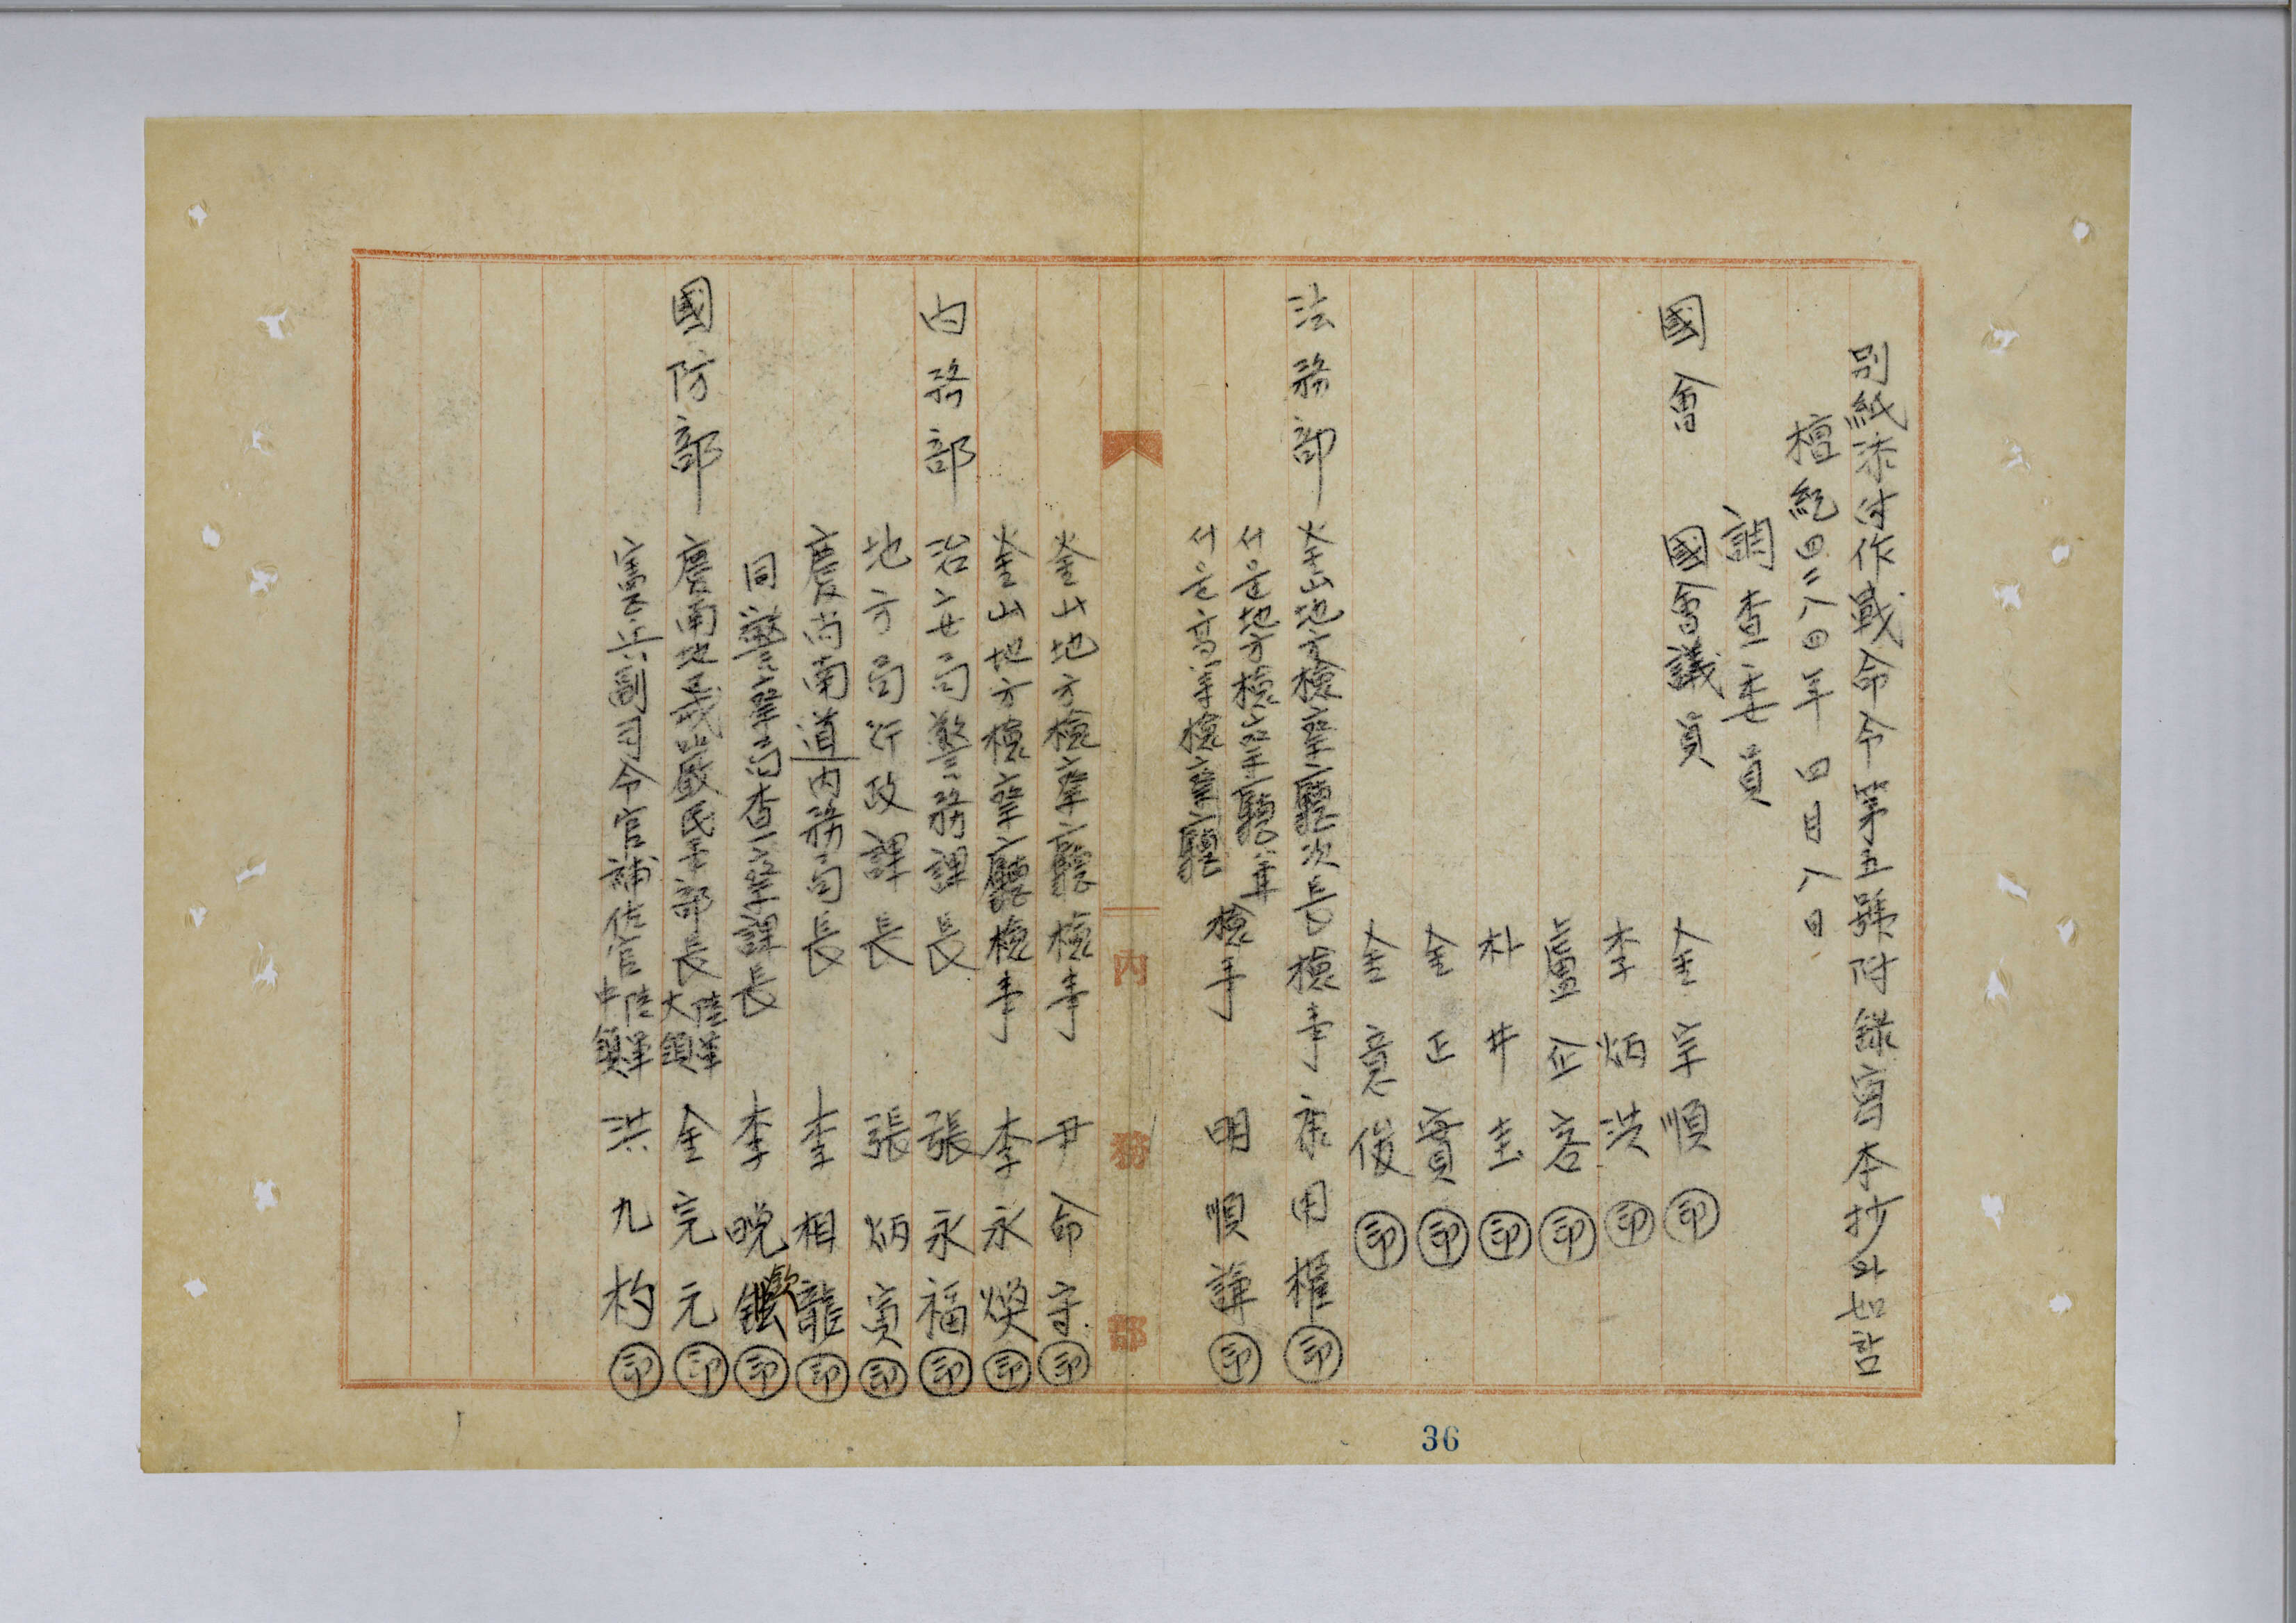 別紙添付作戰命令第五號附錄寫本抄와如함
檀紀四二八四年 四月八日
調查委員
國會 國會議員 金宗順 ㊞
李炳洪 ㊞
盧企容 ㊞
朴井圭 ㊞
金正實 ㊞
金意俊 ㊞
法務部 釜山地方檢察廳次長檢事 康用權 ㊞
서울地方檢察廳兼
서울高等檢察廳 檢事 明順謙 ㊞
內務部
釜山地方檢察廳檢事 尹命守 ㊞
釜山地方檢察廳檢事 李永煥 ㊞
內務部 治安局警務課長 張永福 ㊞
地方局行政課長 張炳寅 ㊞
慶尚南道內務局長 李相龍 ㊞
同警察局查察課長 李晩鉉 欽 ㊞
國防部 慶南地區戒嚴民事部長 陸軍大領 金完元 ㊞
憲兵副司令官補佐官 陸軍中領 洪九杓 ㊞
36